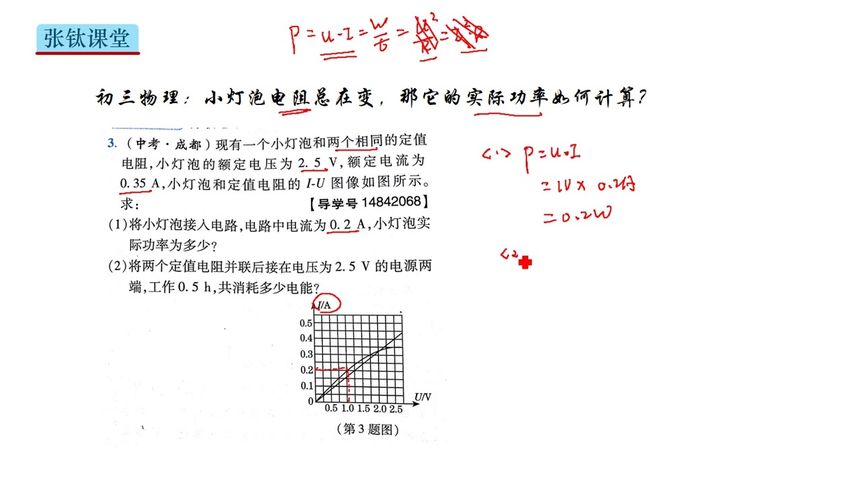 张钛课堂
P=U·I=W/t=
初三物理：小灯泡电阻总在变，那它的实际功率如何计算？
3.（中考·成都）现有一个小灯泡和两个相同的定值
电阻，小灯泡的额定电压为 2.5 V，额定电流为
0.35 A，小灯泡和定值电阻的 I-U 图像如图所示。
求：【导学号 14842068】
(1)将小灯泡接入电路，电路中电流为 0.2 A，小灯泡实
际功率为多少？
(2)将两个定值电阻并联后接在电压为 2.5 V 的电源两
端，工作 0.5 h，共消耗多少电能？
I/A
0.5
0.4
0.3
0.2
0.1
0
0.5 1.0 1.5 2.0 2.5
U/V
(第 3 题图)
<1> P=U·I
=1V×0.2A
=0.2W
<2